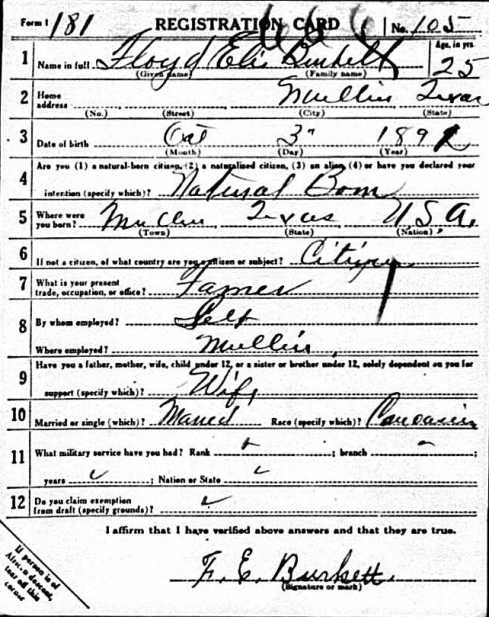 Form 1 181 REGISTRATION CARD No. 105
1 Name in full Floyd Elis Burkett Age, in yrs. 25
(Given name) (Family name)
2 Home address Mullin Texas
(No.) (Street) (City) (State)
3 Date of birth Oct 3" 189
(Month) (Day) (Year)
4 Are you (1) a natural-born citizen, (2) a naturalized citizen, (3) an alien, (4) or have you declared your
intention (specify which)? Natural Born
5 Where were you born? Mullin Texas U.S.A.
(Town) (State) (Nation)
6 If not a citizen, of what country are you a citizen or subject? Citizen
7 What is your present trade, occupation, or office? Farmer
8 By whom employed? Self
Where employed? Mullin
9 Have you a father, mother, wife, child under 12, or a sister or brother under 12, solely dependent on you for
support (specify which)? Wife
10 Married or single (which)? Married Race (specify which)? Caucasian
11 What military service have you had? Rank ; branch ;
years ; Nation or State
12 Do you claim exemption from draft (specify grounds)?
I affirm that I have verified above answers and that they are true.
F. E. Burkett.
(Signature or mark)
If person is of
African descent,
tear off this
corner